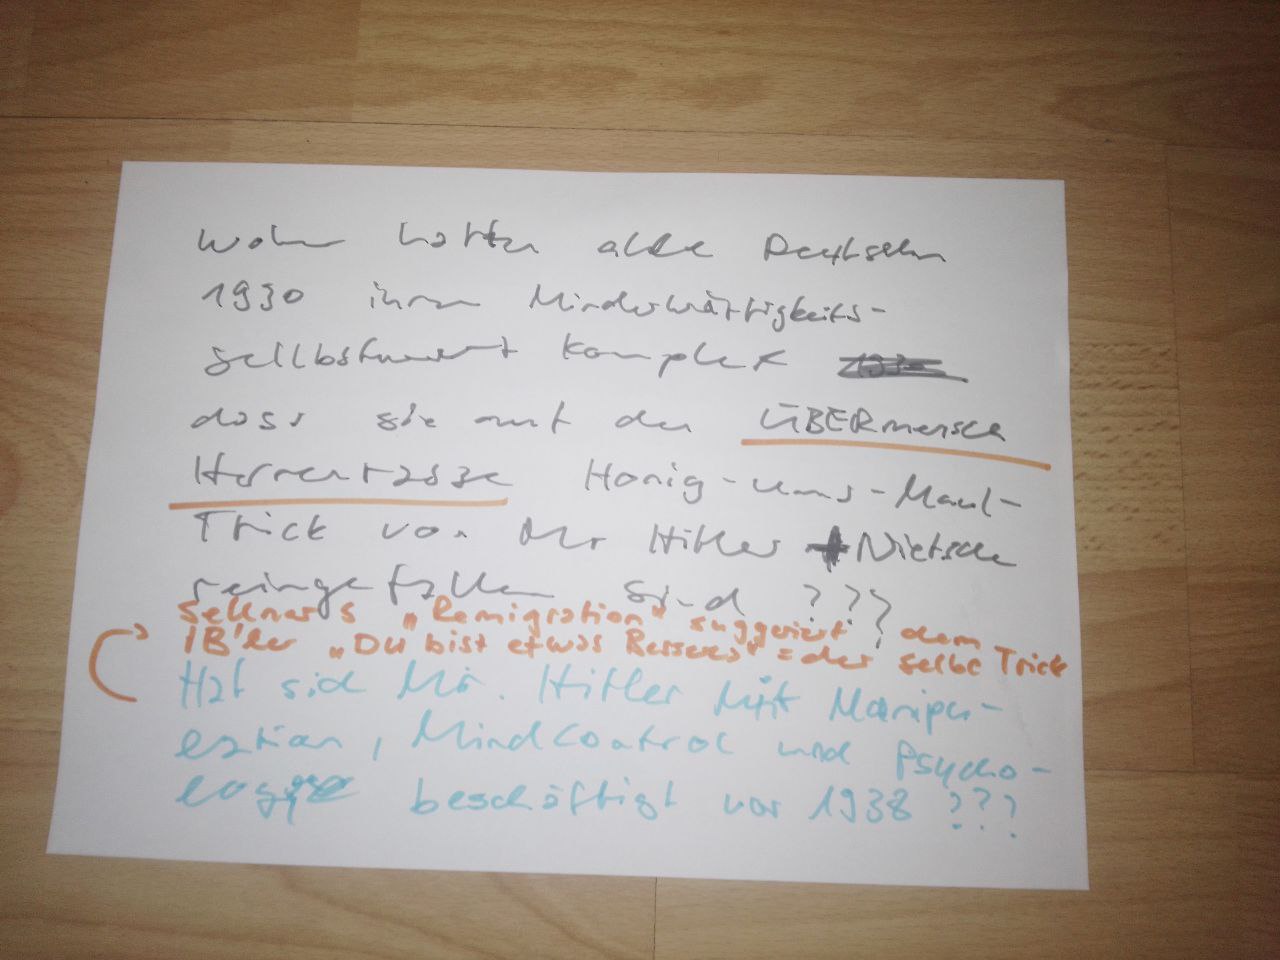 Woher hatten alle Deutschen
1930 ihren Minderwärtigkeits-
sellbstwert Komplex
dass sie auf den ÜBERmensch
Herrenrasse Honig-ums-Maul-
Trick von Mr Hitler + Nietsche
reingefallen sind ???
Sellners „Remigration" suggeriert dem
IB'ler „DU bist etwas Besseres" = der selbe Trick
Hat sich Mr. Hitler Mit Manipu-
lation, MindControl und Psycho-
logie beschäftigt vor 1938 ???